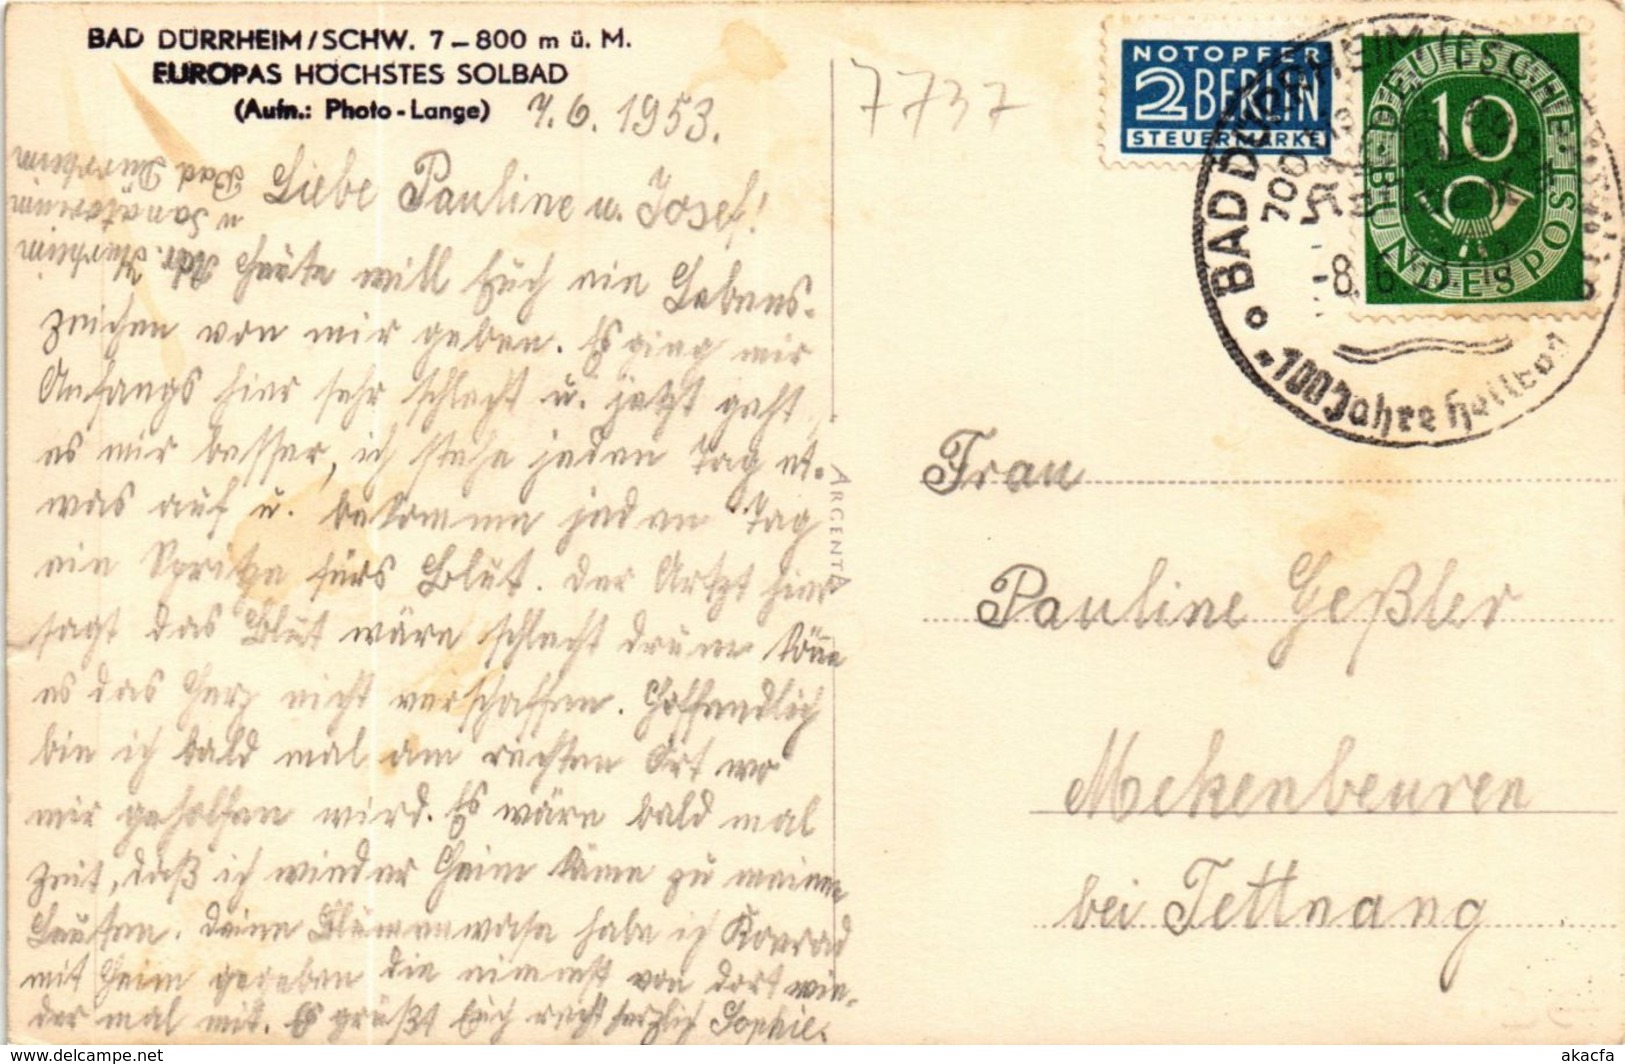 BAD DÜRRHEIM/SCHW. 7-800 m ü. M.
EUROPAS HÖCHSTES SOLBAD
(Aufn.: Photo-Lange)
7.6.1953.
7737
Liebe Pauline u. Josef!
Heute will Euch ein Lebens-
zeichen von mir geben. Es ging mir
Anfangs hier sehr schlecht u. jetzt geht
es mir besser, ich stehe jeden Tag et-
was auf u. bekomme jeden Tag
ein Spritze fürs Blut. Der Artzt hier
sagt das Blut wäre schlecht drum könne
es das Herz nicht verschaffen. Hoffendlich
bin ich bald mal am rechten Ort wo
mir geholfen wird. Es wäre bald mal
Zeit, daß ich wieder Heim käme zu meinen
Leuten. Deine Blumenvase habe ich Konrad
mit Heim gegeben die nimmst von dort wie-
der mal mit. Es grüßt Euch recht herzlich Sophie.
Adr.
u Sanatorium
Bad Dürrheim
ARGENTA
NOTOPFER
2 BERLIN
STEUERMARKE
DEUTSCHE BUNDESPOST
10
BAD DÜRRHEIM
700
-8.6.
100 Jahre Heilbad
Frau
Pauline Geßler
Mekenbeuren
bei Tettnang
akacfa